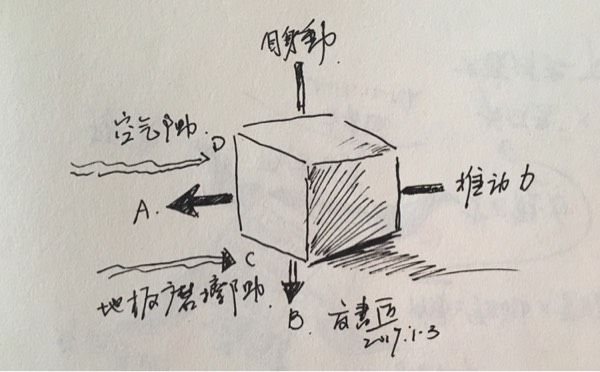 自身重力
空气阻力.
D
A.
推动力
C
地板磨擦阻力.
B.
2017.1.3